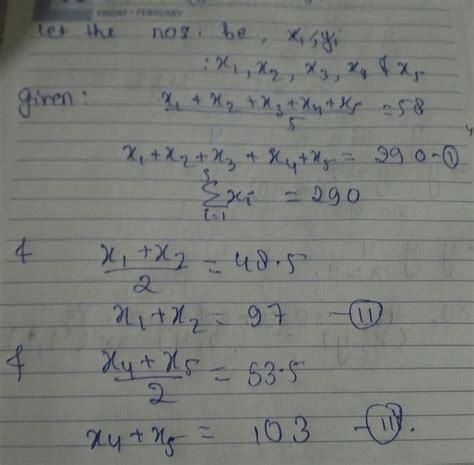 FRIDAY • FEBRUARY
let the nos. be, x₁, y₁
: x₁, x₂, x₃, x₄ & x₅
given: (x₁ + x₂ + x₃ + x₄ + x₅)/5 = 58
x₁ + x₂ + x₃ + x₄ + x₅ = 290 - ①
5 Σ i=1 xi = 290
& (x₁ + x₂)/2 = 48.5
x₁ + x₂ = 97 - ⑪
& (x₄ + x₅)/2 = 53.5
x₄ + x₅ = 103 - ⑪.